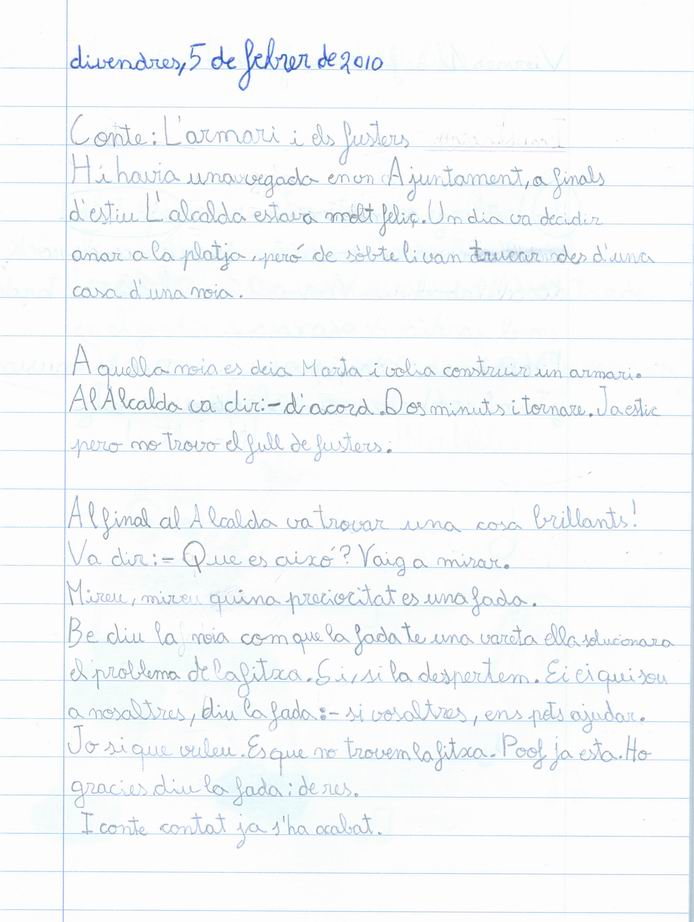 divendres, 5 de febrer de 2010
Conte: L'armari i els fusters
Hi havia una vegada en un Ajuntament, a finals
d'estiu L'alcalda estava molt feliç. Un dia va decidir
anar a la platja, peró de sòbte li van trucar des d'una
casa d'una noia.
Aquella noia es deia Marta i volia construir un armari.
Al Alcalda va dir:- d'acord. Dos minuts i tornare. Ja estic
pero no trovo el full de fusters.
Al final al Alcalda va trovar una cosa brillants!
Va dir:- Que es aixó? Vaig a mirar.
Mireu, mireu quina preciocitat es una fada.
Be diu la noia com que la fada te una vareta ella solucionara
el problema de la fitxa. Si, si la despertem. Ei ei qui sou
a nosaltres, diu la fada:- si vosaltres, ens pots ajudar.
Jo si que vuleu. Es que no trovem la fitxa. Poof ja esta. Ho
gracies diu la fada: de res.
I conte contat ja s'ha acabat.